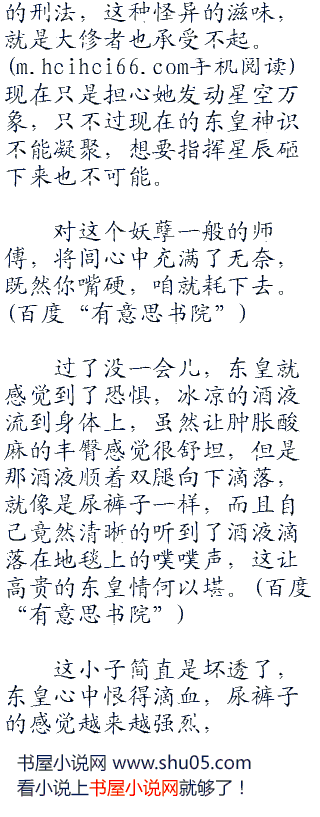 的刑法，这种怪异的滋味，
就是大修者也承受不起。
(m.hcihci66.com手机阅读)
现在只是担心她发动星空万
象，只不过现在的东皇神识
不能凝聚，想要指挥星辰砸
下来也不可能。
对这个妖孽一般的师
傅，将闾心中充满了无奈，
既然你嘴硬，咱就耗下去。
(百度“有意思书院”)
过了没一会儿，东皇就
感觉到了恐惧，冰凉的酒液
流到身体上，虽然让肿胀酸
麻的丰臀感觉很舒坦，但是
那酒液顺着双腿向下滴落，
就像是尿裤子一样，而且自
己竟然清晰的听到了酒液滴
落在地毯上的噗噗声，这让
高贵的东皇情何以堪。(百度
“有意思书院”)
这小子简直是坏透了，
东皇心中恨得滴血，尿裤子
的感觉越来越强烈，
书屋小说网 www.shu05.com
看小说上书屋小说网就够了！